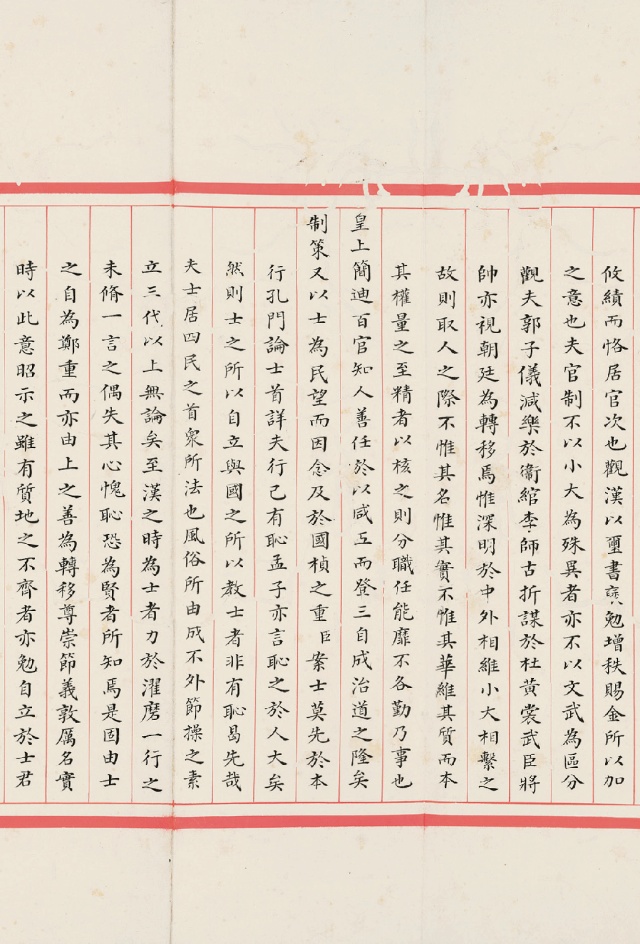 攸績而恪居官次也觀漢以璽書褒勉增秩賜金所以加
之意也夫官制不以小大為殊異者亦不以文武為區分
觀夫郭子儀減樂於衞綰李師古折謀於杜黃裳武臣將
帥亦視朝廷為轉移焉惟深明於中外相維小大相繫之
故則取人之際不惟其名惟其實不惟其華維其質而本
其權量之至精者以核之則分職任能靡不各勤乃事也
皇上簡迪百官知人善任於以咸五而登三自成治道之隆矣
制策又以士為民望而因念及於國楨之重臣案士莫先於本
行孔門論士首詳夫行己有恥孟子亦言恥之於人大矣
然則士之所以自立與國之所以教士者非有恥曷先哉
夫士居四民之首衆所法也風俗所由成不外節操之素
立三代以上無論矣至漢之時為士者力於濯磨一行之
未脩一言之偶失其心愧恥恐為賢者所知焉是固由士
之自為鄭重而亦由上之善為轉移尊崇節義敦厲名實
時以此意昭示之雖有質地之不齊者亦勉自立於士君